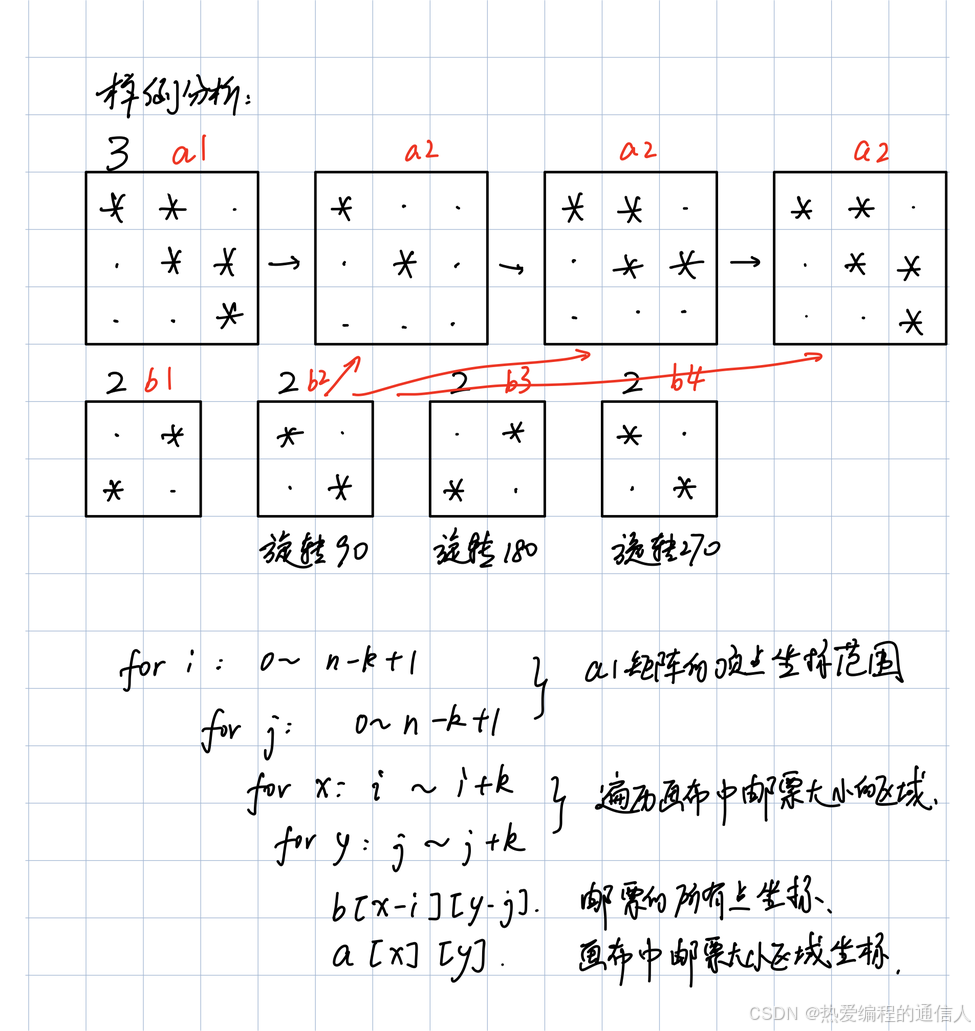 样例分析:
3 a1 a2 a2 a2
* * . * . . * * . * * .
. * * → . * . → . * * → . * *
. . * . . . . . . . . *
2 b1 2 b2 2 b3 2 b4
. * * . . * * .
* . . * * . . *
旋转90 旋转180 旋转270
for i: 0~ n-k+1 } a1矩阵的顶点坐标范围
for j: 0~ n-k+1
for x: i ~ i+k } 遍历画布中邮票大小的区域、
for y: j ~ j+k
b[x-i][y-j]. 邮票的所有点坐标、
a[x][y]. 画布中邮票大小区域坐标.
CSDN @热爱编程的通信人